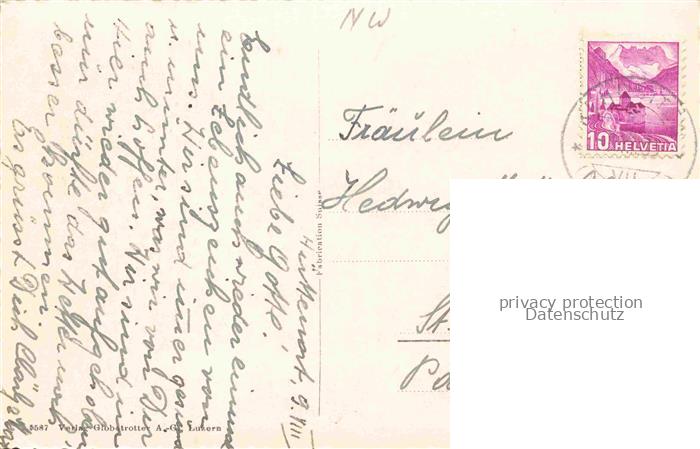 NW
Hüttenort, 9. VIII
Liebe Gotte!
Endlich auch wieder einmal
ein Lebenszeichen von
uns. Wir sind immer gesund
u. munter, was wir von Dir
auch hoffen. Wir sind in
hier wieder gut aufgehoben
nur dürfte das Wetter noch
besser kommen.
Es grüsst Dich
Fräulein
Hedwig
St.
Pa
10 HELVETIA
VIII
Fabrication Suisse
5587 Verlag Globetrotter A.-G., Luzern
privacy protection
Datenschutz